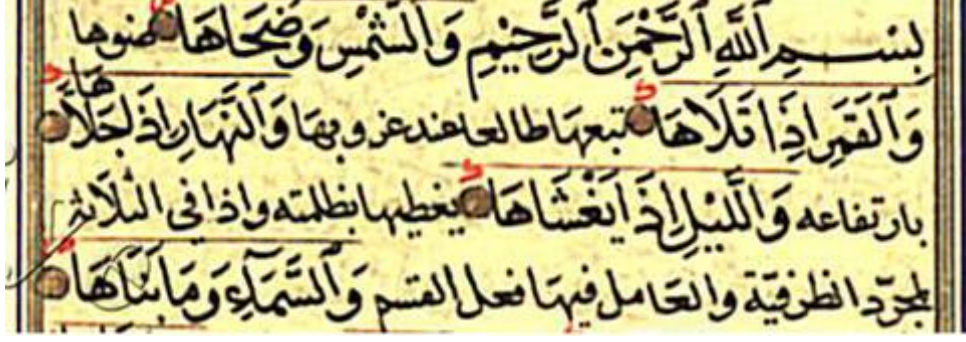 بِسْــمِ ٱللَّهِ ٱلرَّحْمٰنِ ٱلرَّحِيْمِ وَٱلشَّمْسِ وَضُحَاهَا ضوءها
وَٱلْقَمَرِ اِذَا تَلَاهَا تبعها طالعا عند غروبها وَٱلنَّهَارِ اِذَا جَلَّاهَا
بارتفاعه وَٱللَّيْلِ اِذَا يَغْشَاهَا يغطيها بظلمته واذا فى الثلاثة
لمجرّد الظرفيّة والعامل فيها فعل القسم وَٱلسَّمَآءِ وَمَا بَنَاهَا